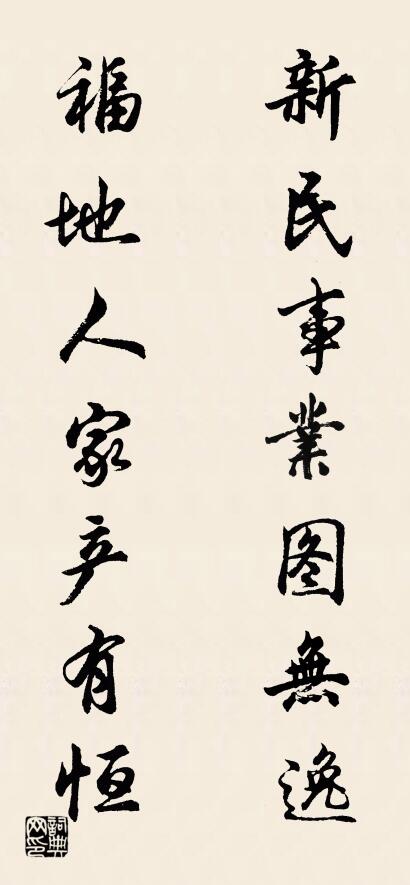 新民事業图無逸
福地人家产有恒
詞典网印